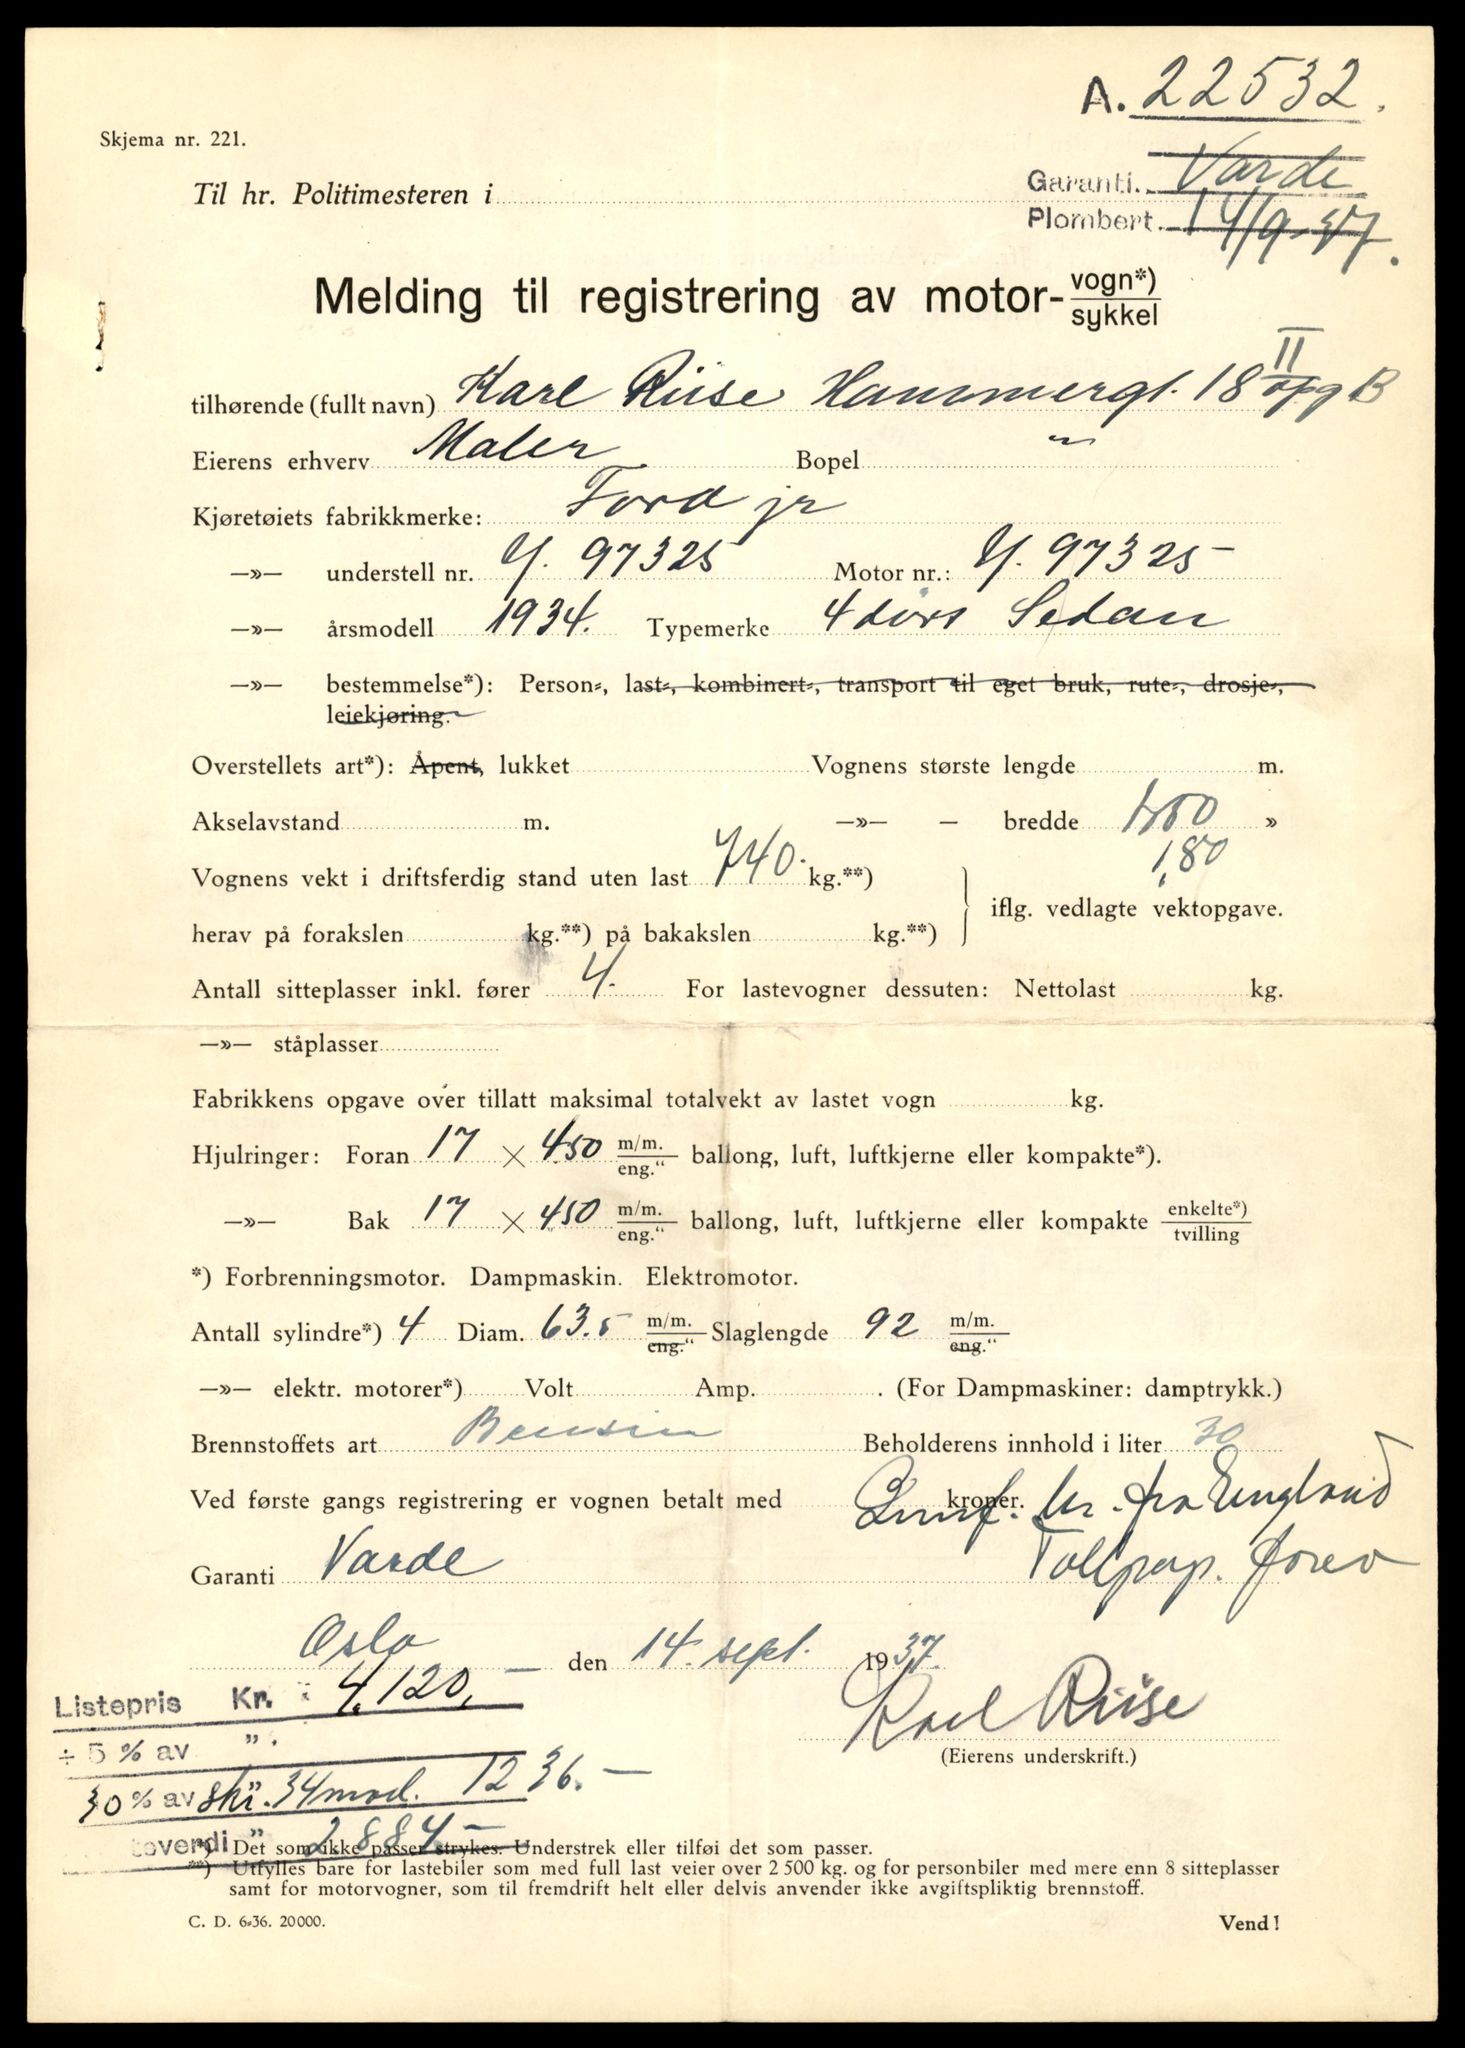 A. 22532.
Skjema nr. 221.
Garanti. Varde
Til hr. Politimesteren i
Plombert. 14/9-37.
Melding til registrering av motor- vogn*) / sykkel
tilhørende (fullt navn) Karl Riise Hammergt. 18 II opg B
Eierens erhverv Maler Bopel "
Kjøretøiets fabrikkmerke: Ford jr
—»— understell nr. Y. 97325 Motor nr.: Y. 97325
—»— årsmodell 1934. Typemerke 4 dørs Sedan
—»— bestemmelse*): Person-, last-, kombinert-, transport til eget bruk, rute-, drosje-,
leiekjøring.
Overstellets art*): Åpent, lukket Vognens største lengde m.
Akselavstand m. —»— — bredde »
1,80
Vognens vekt i driftsferdig stand uten last 740. kg.**)
iflg. vedlagte vektopgave.
herav på forakslen kg.**) på bakakslen kg.**)
Antall sitteplasser inkl. fører 4. For lastevogner dessuten: Nettolast kg.
—»— ståplasser
Fabrikkens opgave over tillatt maksimal totalvekt av lastet vogn kg.
Hjulringer: Foran 17 × 450 m/m. / eng." ballong, luft, luftkjerne eller kompakte*).
—»— Bak 17 × 450 m/m. / eng." ballong, luft, luftkjerne eller kompakte enkelte*) / tvilling
*) Forbrenningsmotor. Dampmaskin. Elektromotor.
Antall sylindre*) 4 Diam. 63.5 m/m. / eng." Slaglengde 92 m/m. / eng."
—»— elektr. motorer*) Volt Amp. . (For Dampmaskiner: damptrykk.)
Brennstoffets art Bensin Beholderens innhold i liter 30
Ved første gangs registrering er vognen betalt med kroner. fra England
Garanti Varde Tollpap. forev
Oslo den 14. sept. 1937.
Listepris Kr. 4.120,—
Karl Riise
÷ 5 % av ".
(Eierens underskrift.)
30 % av " 34 mod. 1236.—
toverdi " 2884.—
*) Det som ikke passer strykes. Understrek eller tilføi det som passer.
**) Utfylles bare for lastebiler som med full last veier over 2 500 kg. og for personbiler med mere enn 8 sitteplasser
samt for motorvogner, som til fremdrift helt eller delvis anvender ikke avgiftspliktig brennstoff.
C. D. 6-36. 20000.
Vend!